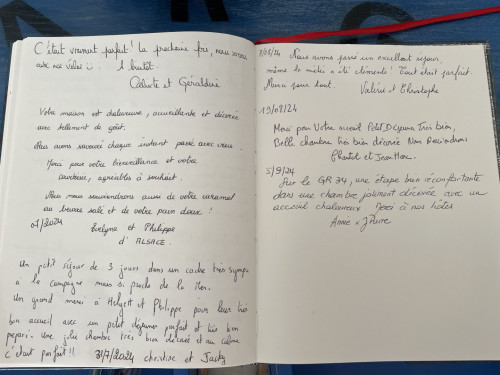 C'était vraiment parfait! La prochaine fois, nous serons
avec nos vélos :. A bientôt.
Céleste et Géraldine
Votre maison est chaleureuse, accueillante et décorée
avec tellement de goût.
Nous avons savouré chaque instant passé avec vous.
Merci pour votre bienveillance et votre
, agréables à souhait.
Nous nous souviendrons aussi de votre caramel
au beurre salé et de votre pain doux!
07/2024 Evelyne et Philippe
d'ALSACE.
Un petit séjour de 3 jours dans un cadre très sympa
à la campagne mais si proche de la mer.
Un grand merci à et Philippe pour leur très
bon accueil avec un petit déjeuner parfait et très bien
préparé. Une jolie chambre très bien décorée et au calme
c'était parfait!! 31/7/2024 christine et Jacky
/08/24 Nous avons passé un excellent séjour,
même la météo a été clémente! Tout était parfait.
Merci pour tout. Valérie et Christophe
19/08/24
Merci pour Votre accueil Petit Déjeuner Très bien,
Belle chambre très bien décorée Nous Reviendrons
Chantal et Jean Marc.
5/9/24
Sur le GR 34, une étape bien réconfortante
dans une chambre joliment décorée avec un
accueil chaleureux Merci à nos hôtes
Annie &